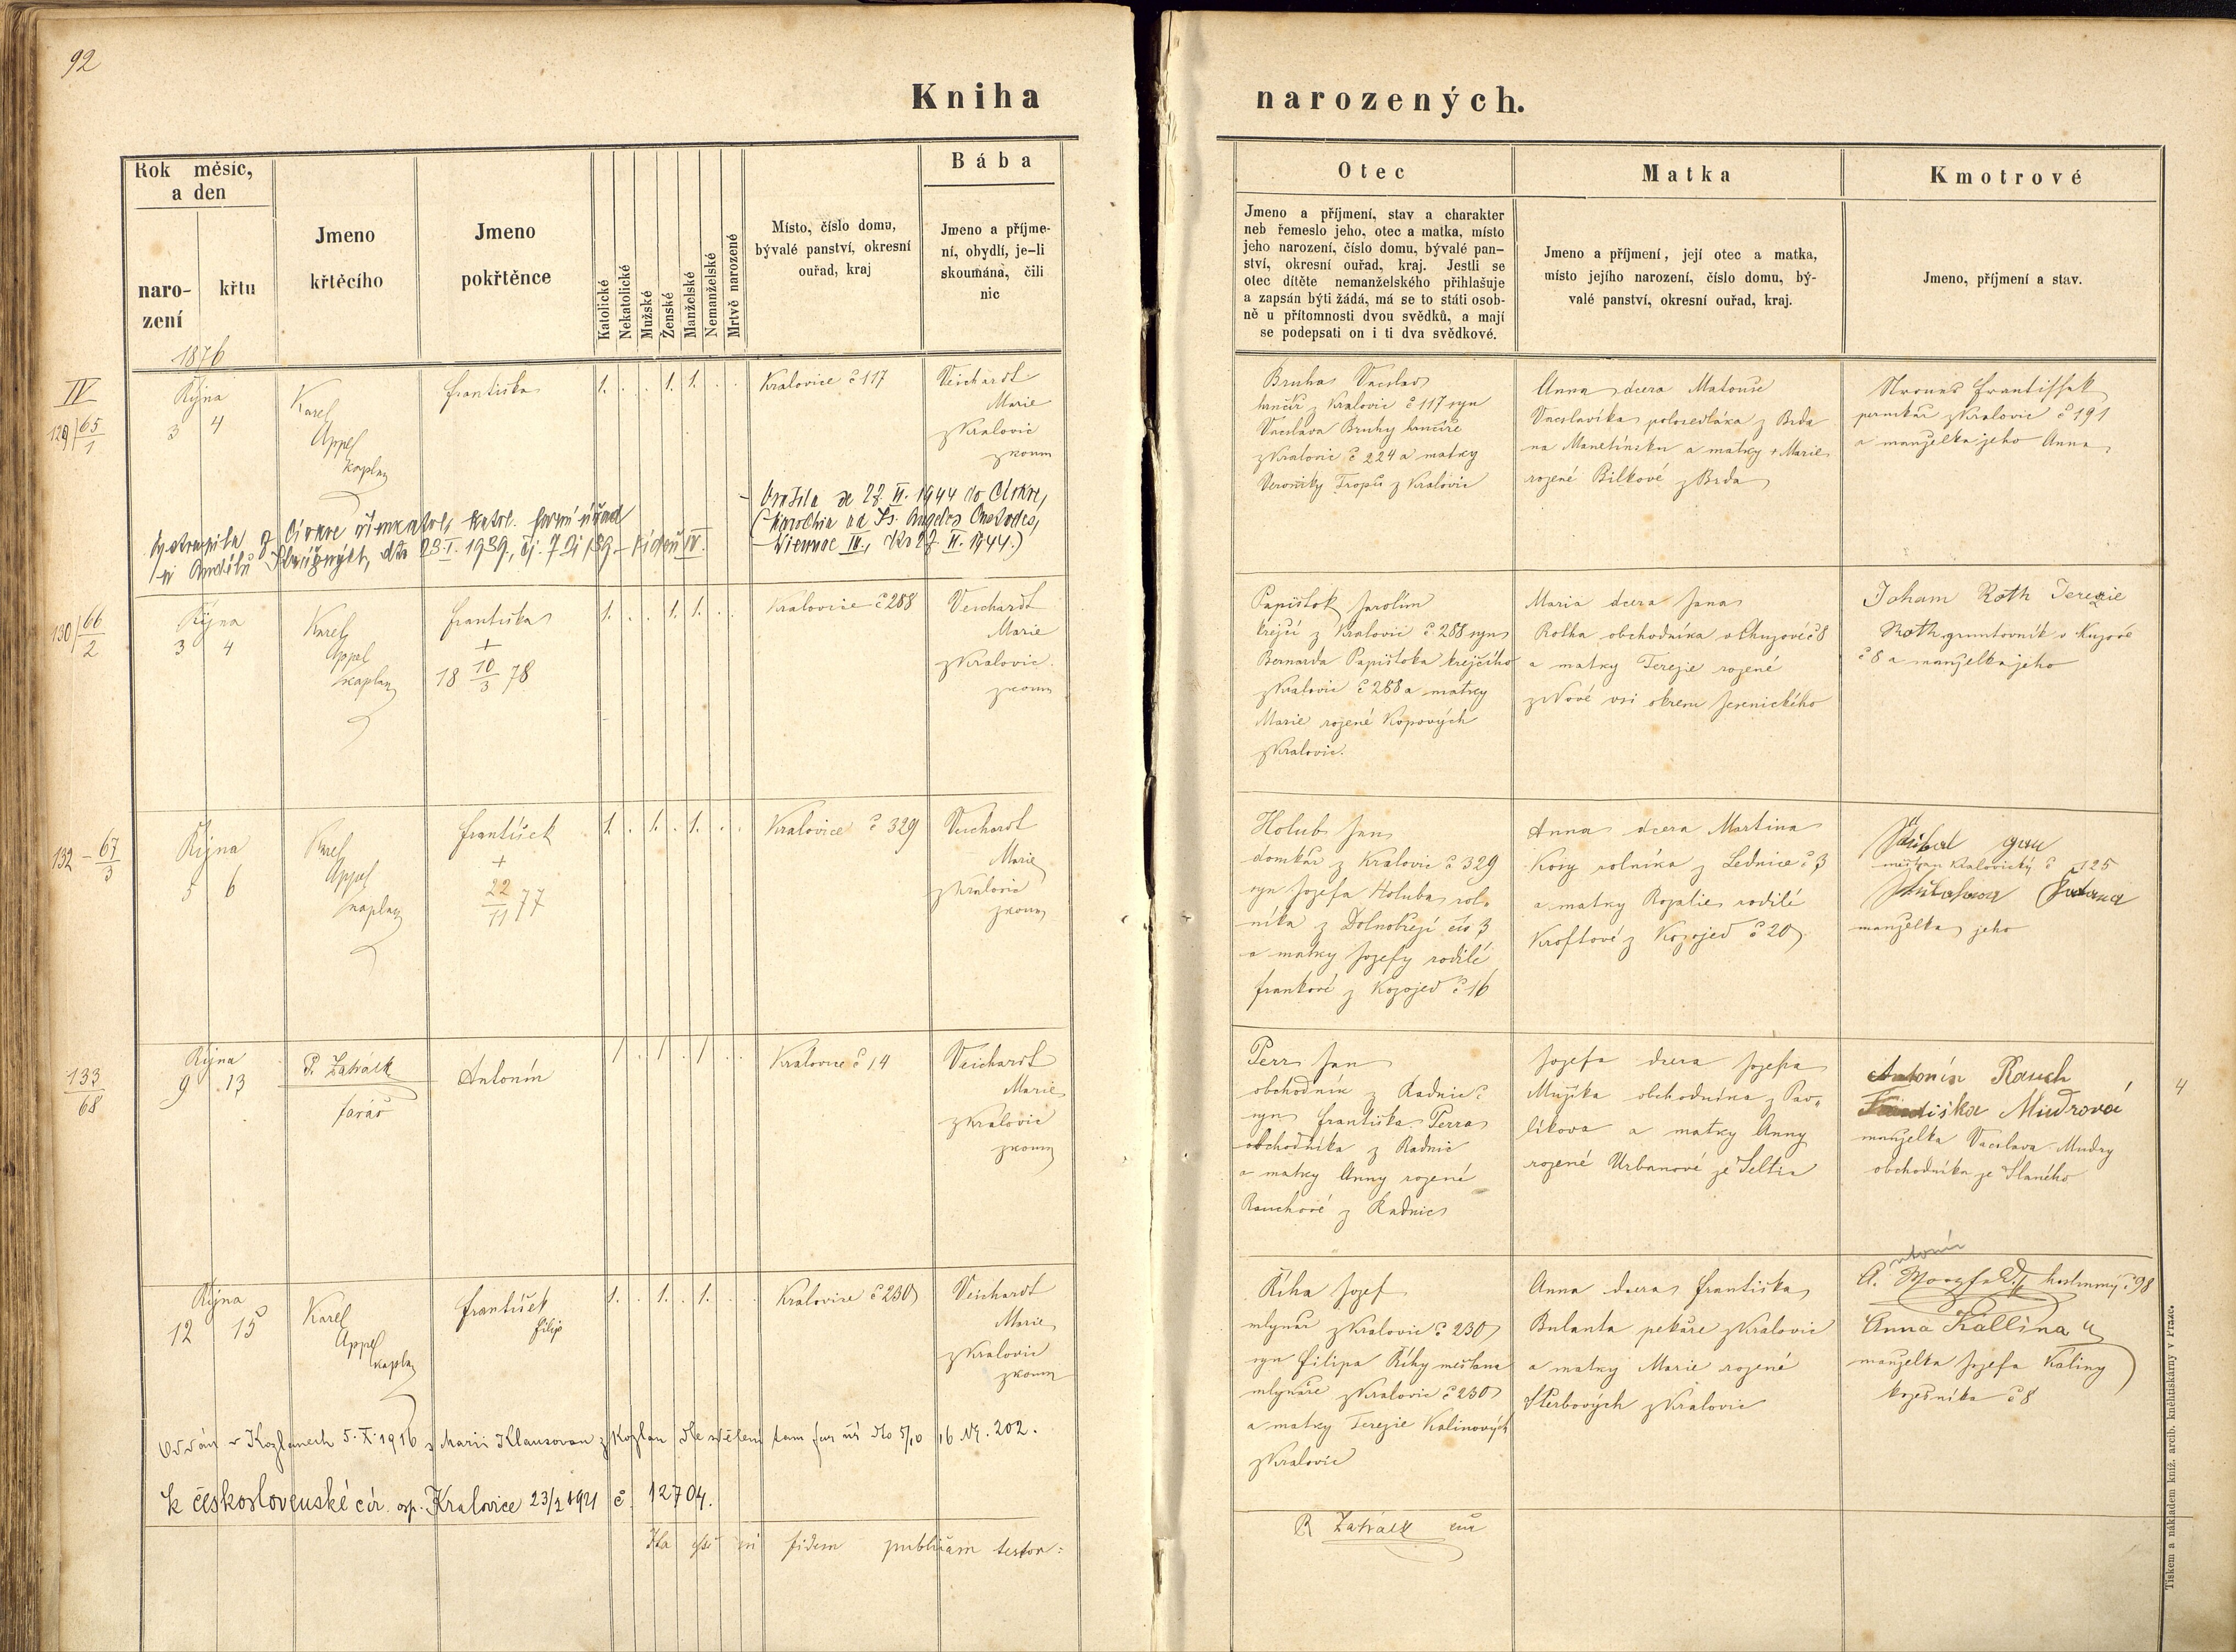 92
Kniha narozených.
Rok měsíc,
a den
naro-
zení
křtu
Jmeno
křtěcího
Jmeno
pokřtěnce
Katolické
Nekatolické
Mužské
Ženské
Manželské
Nemanželské
Mrtvě narozené
Místo, číslo domu,
bývalé panství, okresní
ouřad, kraj
Bába
Jmeno a příjme-
ní, obydlí, je-li
skoumána, čili
nic
Otec
Jmeno a příjmení, stav a charakter
neb řemeslo jeho, otec a matka, místo
jeho narození, číslo domu, bývalé pan-
ství, okresní ouřad, kraj. Jestli se
otec dítěte nemanželského přihlašuje
a zapsán býti žádá, má se to státi osob-
ně u přítomnosti dvou svědků, a mají
se podepsati on i ti dva svědkové.
Matka
Jmeno a příjmení, její otec a matka,
místo jejího narození, číslo domu, bý-
valé panství, okresní ouřad, kraj.
Kmotrové
Jmeno, příjmení a stav.
1876
IV
129/65
1
Října
3 4
Karel
Appel
kaplan
Františka
1. . . 1. 1. . .
Kralovice č 117
Veichardt
Marie
z Kralovic
zkoum
Bruha Vacslav
hrnčíř z Kralovic č 117 syn
Vacslava Bruhy hrnčíře
z Kralovic č 224 a matky
Veroniky Tropů z Kralovic
Anna dcera Matouše
Vacslavíka polosedláka z Brda
na Manetínsku a matky + Marie
rozené Bílkové z Brda
Frantissek
z Kralovic č 191
a manželka jeho Anna
Vystoupila z Církve římskokatol. katol. farní úřad
u Andělů Strážných, dto 23.I.1939, čj. 7 Di/39 - Vídeň IV.
- Vrátila se 27. II. 1944 do Církve,
(Parochia ad Ss. Angelos Custodes,
- Viennae IV., dto 27. II. 1944.)
130/66
2
Října
3 4
Karel
Appel
kaplan
Františka
+
18 10/3 78
1. . . 1. 1. . .
Kralovice č 288
Veichardt
Marie
z Kralovic
zkoum
Papištok Jarolím
krejčí z Kralovic č. 288 syn
Bernarda Papištoka krejčího
z Kralovic č 288 a matky
Marie rozené Kopových
z Kralovic.
Maria dcera Jana
Rotha obchodníka č 8
a matky Terezie rozené
z Nové vsi okresu Jesenického
Joham Roth Terezie
Roth gruntovník v Kuzové
č 8 a manželka jeho
132 - 67
3
Října
5 6
Karel
Appel
kaplan
František
+
22/11 77
1. . 1. . 1. . .
Kralovice č 329
Veichardt
Marie
z Kralovic
zkoum
Holub Jan
domkář z Kralovic č 329
syn Jozefa Holuba rol-
níka z čís 3
a matky Jozefy rodilé
Frankové z Kozojed č 16
Anna dcera Martina
Kosy rolníka z Lednice č 3
a matky Rozalie rodilé
Kroftové z Kozojed č 20
měšťan Kralovický č 125
manželka jeho
133
68
Října
9 13
P. Zahálk
farář
Antonín
1 . 1 . 1 . .
Kralovice č 14
Veichardt
Marie
z Kralovic
zkoum
Perr Jan
obchodník z Radnic
syn Františka Perra
obchodníka z Radnic
a matky Anny rozené
Rauchové z Radnic
Jozefa dcera Jozefa
Mužíka obchodníka z Pav-
líkova a matky Anny
rozené Urbanové ze Seltin
Antonín Rauch
Františka Mudrová
manželka Vacslava Mudry
obchodníka ze Slaného
4
Října
12 15
Karel
Appel
kaplan
František
Filip
1. . 1. . 1. . .
Kralovice č 230
Veichardt
Marie
z Kralovic
zkoum
Říha Jozef
mlynář z Kralovic č 230
syn Filipa Říhy měšťana
mlynáře z Kralovic č 230
a matky Terezie Kalinových
z Kralovic
Anna dcera Františka
Bulanta pekaře z Kralovic
a matky Marie rozené
Štěrbových z Kralovic
Antonín
A. hostinský č 98
Anna Kallina
manželka Jozefa Kaliny
kožešníka č 8
Oddán v Kožlanech 5.X.1916 s Marií Klausovou z Kožlan dle sdělení tam far úř dto 5/10 16 Nr. 202.
K československé cír. osp. Kralovice 23/2 1921 č. 12704.
Ita in fidem publicam testor:
P. Zahálk
Tiskem a nákladem kníž. arcib. knihtiskárny v Praze.